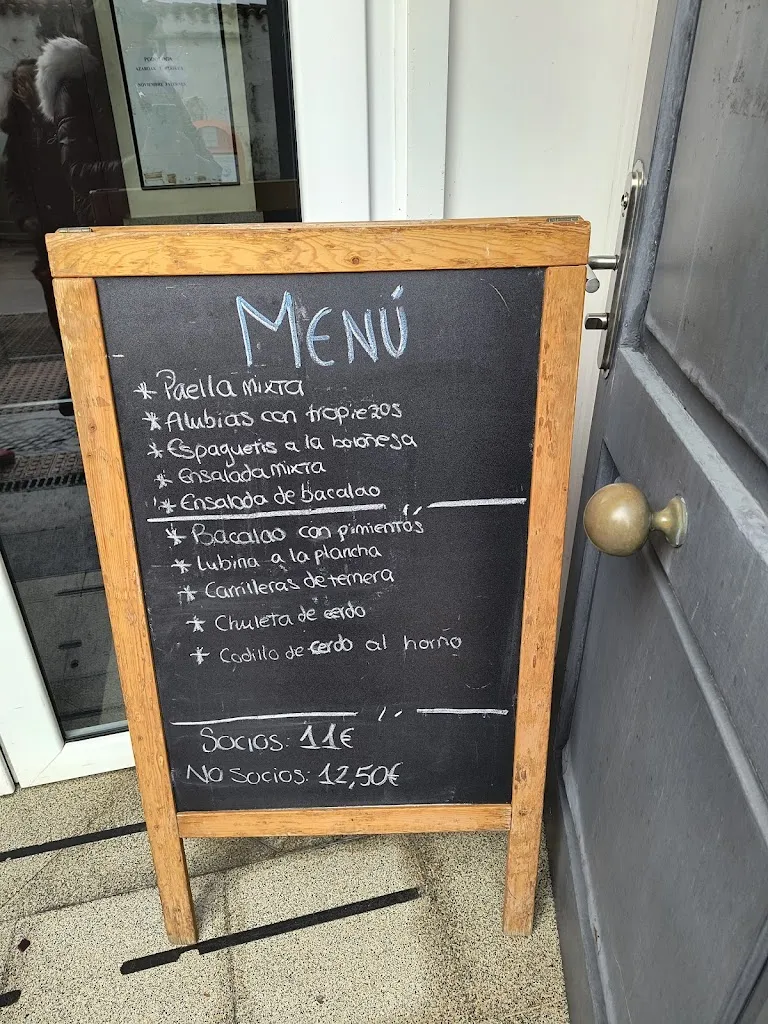 MENÚ
* Paella mixta
* Alubias con tropiezos
* Espaguetis a la boloñesa
* Ensalada mixta
* Ensalada de bacalao
* Bacalao con pimientos
* Lubina a la plancha
* Carrilleras de ternera
* Chuleta de cerdo
* Codillo de cerdo al horno
Socios: 11€
No socios: 12,50€